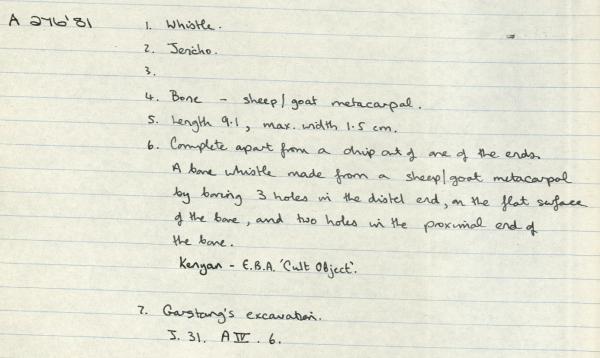 A 276'81
1. Whistle.
2. Jericho.
3.
4. Bone - sheep/goat metacarpal.
5. Length 9.1, max. width 1.5 cm.
6. Complete apart from a chip out of one of the ends.
A bone whistle made from a sheep/goat metacarpal
by boring 3 holes in the distel end, on the flat surface
of the bone, and two holes in the proximal end of
the bone.
Kenyan - E.B.A. 'Cult Object'.
7. Garstang's excavation.
J. 31. A IV. 6.